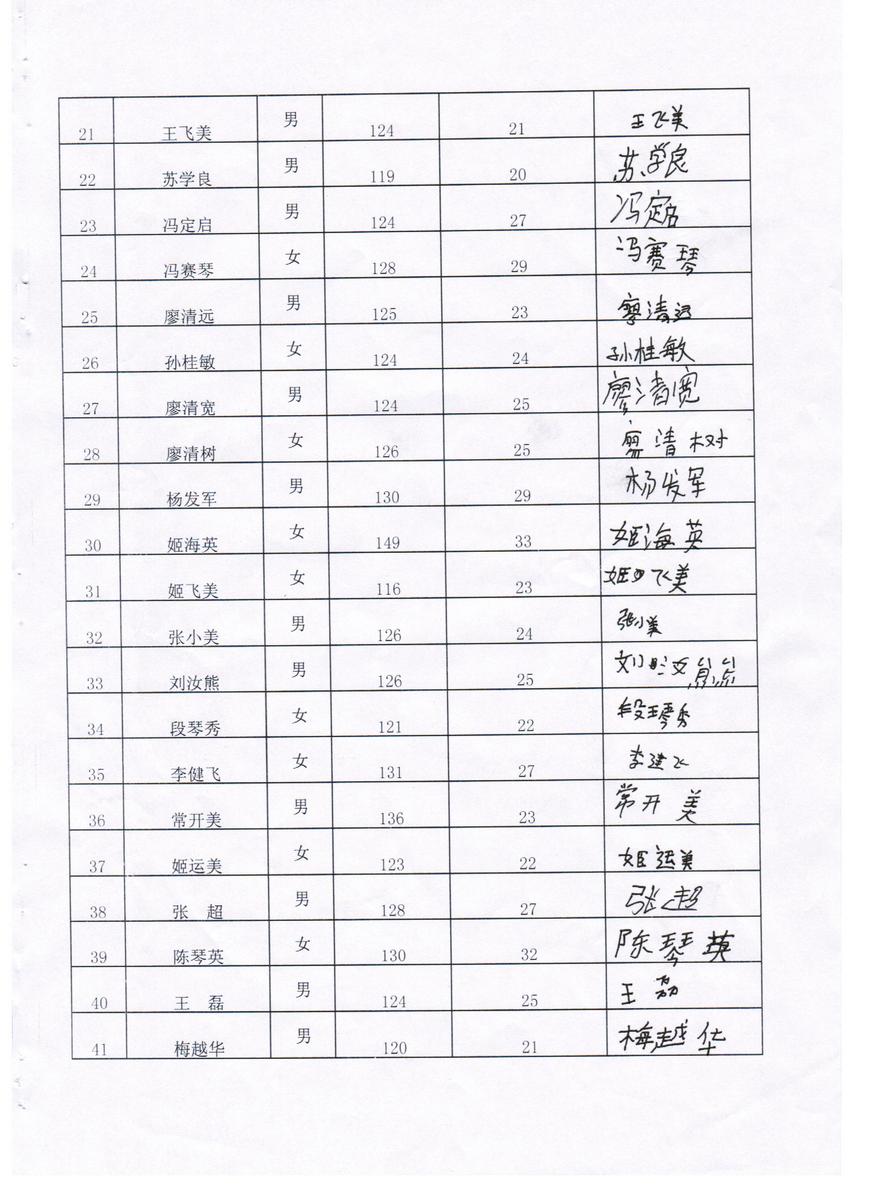 21 王飞美 男 124 21 王飞美
22 苏学良 男 119 20 苏学良
23 冯定启 男 124 27 冯定启
24 冯赛琴 女 128 29 冯赛琴
25 廖清远 男 125 23 廖清远
26 孙桂敏 女 124 24 孙桂敏
27 廖清宽 男 124 25 廖清宽
28 廖清树 女 126 25 廖清树
29 杨发军 男 130 29 杨发军
30 姬海英 女 149 33 姬海英
31 姬飞美 女 116 23 姬飞美
32 张小美 男 126 24 张小美
33 刘汝熊 男 126 25 刘汝熊
34 段琴秀 女 121 22 段琴秀
35 李健飞 女 131 27 李建飞
36 常开美 男 136 23 常开美
37 姬运美 女 123 22 姬运美
38 张 超 男 128 27 张超
39 陈琴英 女 130 32 陈琴英
40 王 磊 男 124 25 王
41 梅越华 男 120 21 梅越华